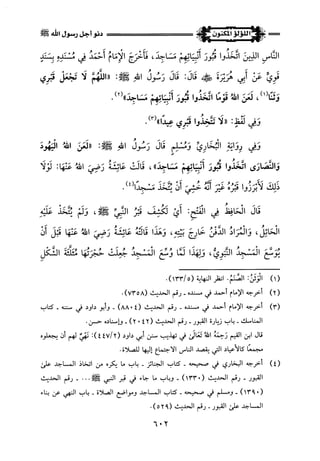 اللؤلؤ المكنون
دنو أجل رسول الله ﷺ
النَّاسِ الذِينَ اتَّخَذُوا قُبُورَ أَنْبِيَائِهِمْ مَسَاجِدَ، فأخرج الإمامُ أحمدُ في مُسنَدِهِ بِسَنَدٍ
قويٍّ عن أبي هُرَيْرَةَ ﷺ قال: قال رَسُولُ اللهِ ﷺ: «اللَّهُمَّ لَا تَجْعَلْ قَبْرِي
وَثَنًا(١)، لَعَنَ اللهُ قَوْمًا اتَّخَذُوا قُبُورَ أَنْبِيَائِهِمْ مَسَاجِدَ»(٢).
وفي لَفْظٍ: «لَا تَتَّخِذُوا قَبْرِي عِيدًا»(٣).
وفي رِوَايَةِ البُخَارِيِّ ومُسْلِمٍ قال رَسُولُ اللهِ ﷺ: «لَعَنَ اللهُ اليَهُودَ
والنَّصَارَى اتَّخَذُوا قُبُورَ أَنْبِيَائِهِمْ مَسَاجِدَ»، قالت عَائِشَةُ رَضِيَ اللهُ عَنْهَا: لَوْلَا
ذلِكَ لَأَبْرَزُوا قَبْرَهُ غَيْرَ أَنَّهُ خُشِيَ أَنْ يُتَّخَذَ مَسْجِدًا(٤).
قال الحَافِظُ في الفَتْحِ: أي لَكُشِفَ قَبْرُ النَّبِيِّ ﷺ، ولَمْ يُتَّخَذْ عَلَيْهِ
الحَائِلُ، والمُرَادُ الدَّفْنُ خَارِجَ بَيْتِهِ، وهَذَا قَالَتْهُ عَائِشَةُ رَضِيَ اللهُ عَنْهَا قَبْلَ أنْ
يُوَسَّعَ المَسْجِدُ النَّبَوِيُّ، ولِهَذَا لَمَّا وُسِّعَ المَسْجِدُ جُعِلَتْ حُجْرَتُهَا مُثَلَّثَةَ الشَّكْلِ
(١) الوَثَنُ: الصَّنَمُ. انظر النهاية (١٣٣/٥).
(٢) أخرجه الإمام أحمد في مسنده - رقم الحديث (٧٣٥٨).
(٣) أخرجه الإمام أحمد في مسنده - رقم الحديث (٨٨٠٤) - وأبو داود في سننه - كتاب
المناسك - باب زيارة القبور - رقم الحديث (٢٠٤٢) - وإسناده حسن.
قال ابن القيم رَحِمَهُ اللهُ تَعَالَى في تهذيب سنن أبي داود (٤٤٧/٢): نهيٌ لهم أن يجعلوه
مجمعًا كالأعياد التي يقصد الناس الاجتماع إليها للصلاة.
(٤) أخرجه البخاري في صحيحه - كتاب الجنائز - باب ما يكره من اتخاذ المساجد على
القبور - رقم الحديث (١٣٣٠) - وباب ما جاء في قبر النبي ﷺ ... - رقم الحديث
(١٣٩٠) - ومسلم في صحيحه - كتاب المساجد ومواضع الصلاة - باب النهي عن بناء
المساجد على القبور - رقم الحديث (٥٢٩).
٦٠٢